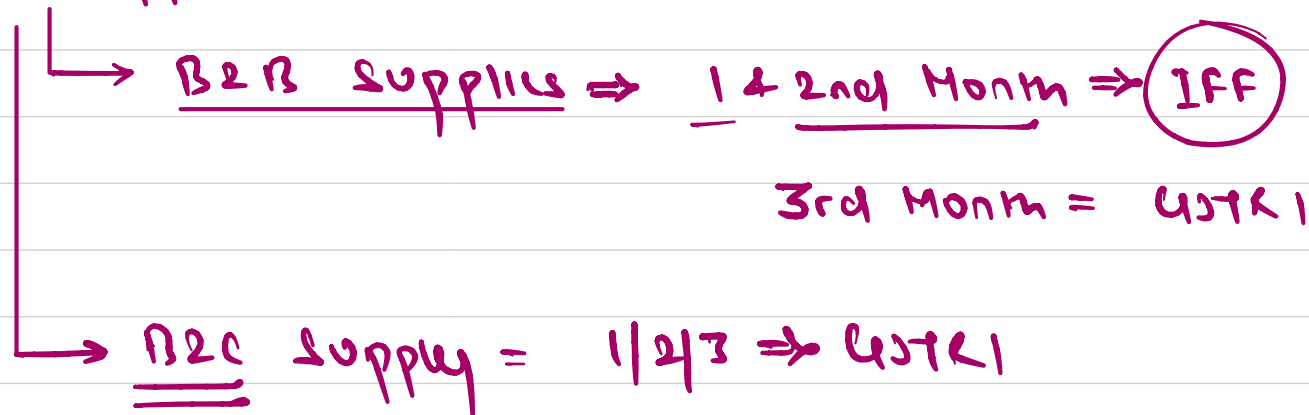 B2B Supplies ⇒ 1 & 2nd Month ⇒ IFF
3rd Month = GSTR 1
B2C Supply = 1/2/3 ⇒ GSTR 1